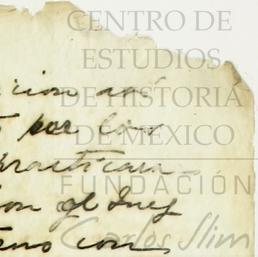 CENTRO DE
ESTUDIOS
DE HISTORIA
DE MEXICO
FUNDACIÓN
Carlos Slim
cion así
por los
practicara
on el Juez
con